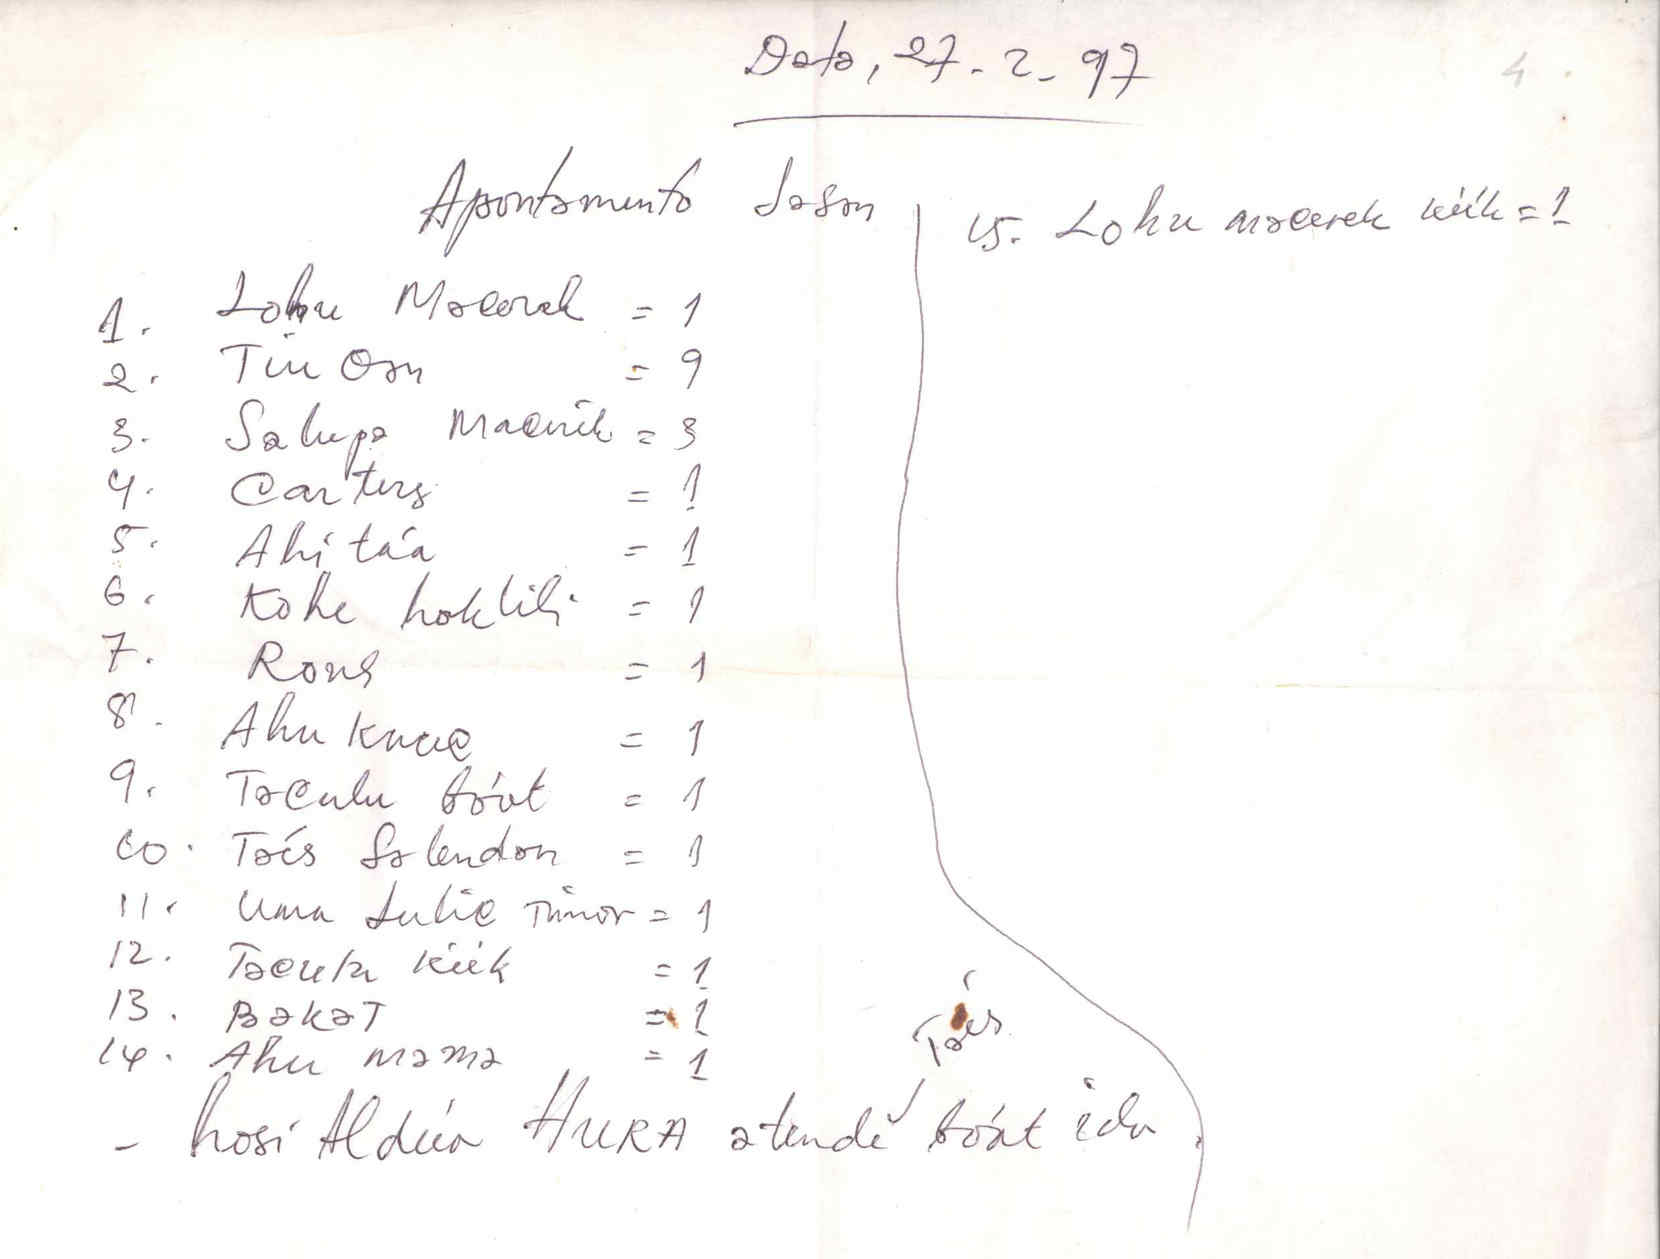 Data, 27-2-97
4
Apontamento Sasan
1. Lohu Macerek = 1
2. Tiu Oan = 9
3. Salupa Macnik = 3
4. Carters = 1
5. Ahi táa = 1
6. Kohe hoklili = 1
7. Rons = 1
8. Ahu Knuu = 1
9. Taculu bóot = 1
10. Taís Salendan = 1
11. Uma Lulic Timor = 1
12. Tacula kiik = 1
13. BakaT = 1
14. Ahu mama = 1
15. Lohu macerek kiik = 1
Taís
- hosi Aldeia HURA atende bóot ida